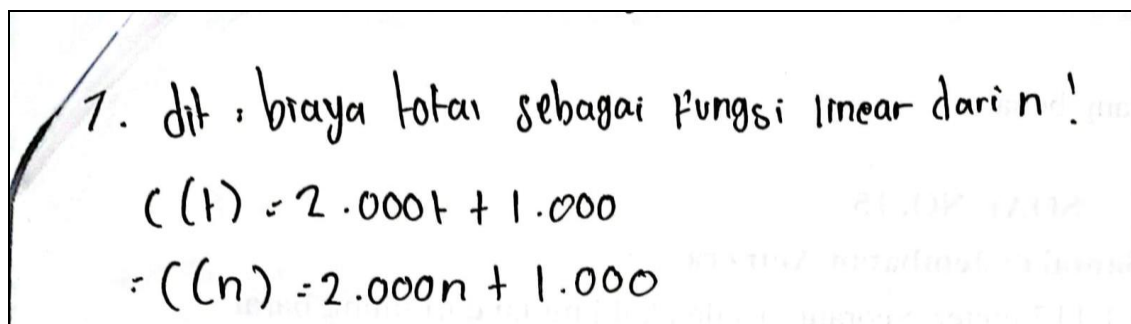 1. dit : biaya total sebagai Fungsi linear dari n!
C(t) = 2.000t + 1.000
= C(n) = 2.000n + 1.000